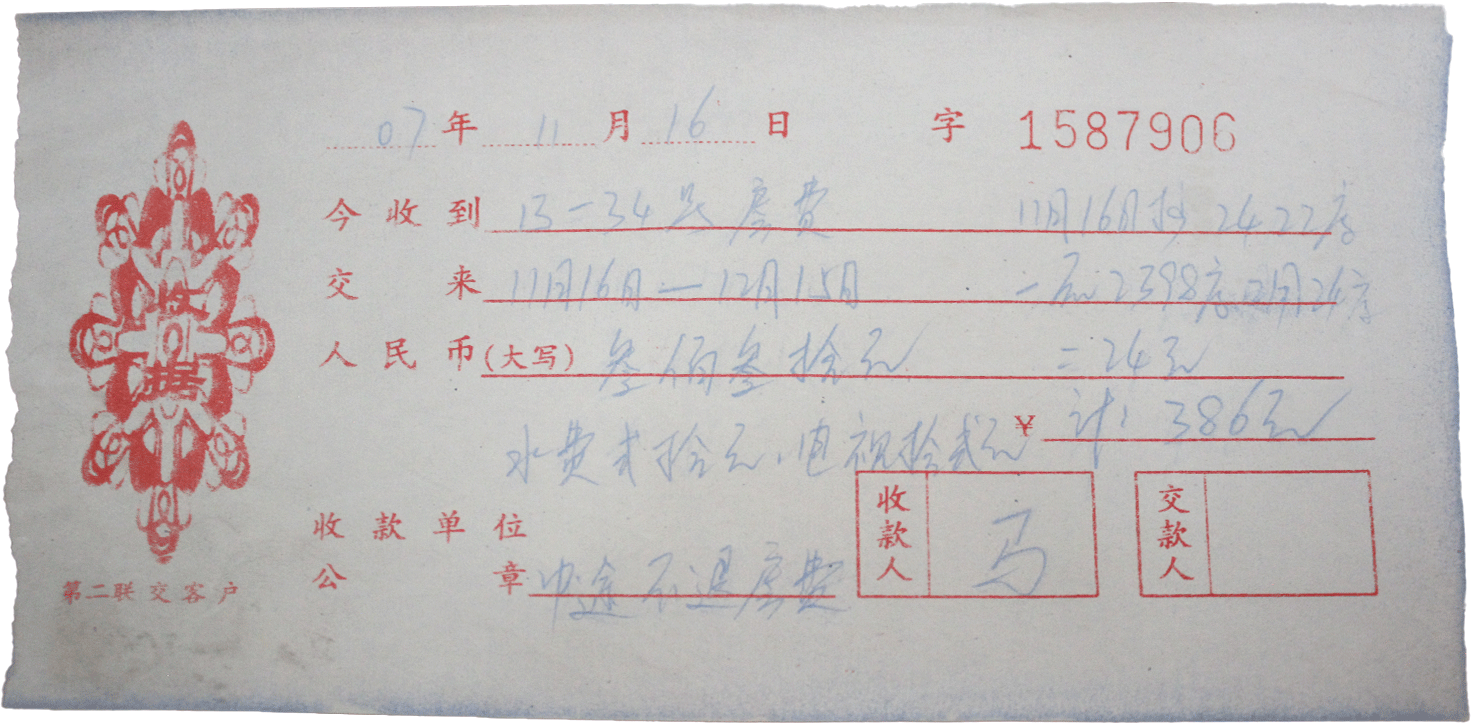 07年 11月 16日 字 1587906
今收到 13-34号房费 11月16日抄2422度
交来 11月16日—12月15日 2398度 24度
人民币(大写) 叁佰叁拾元 =24元
¥ 计:386元
水费贰拾元、电视拾贰元
收款单位
公章 中途不退房费
收款人 马
交款人
收据
第二联交客户